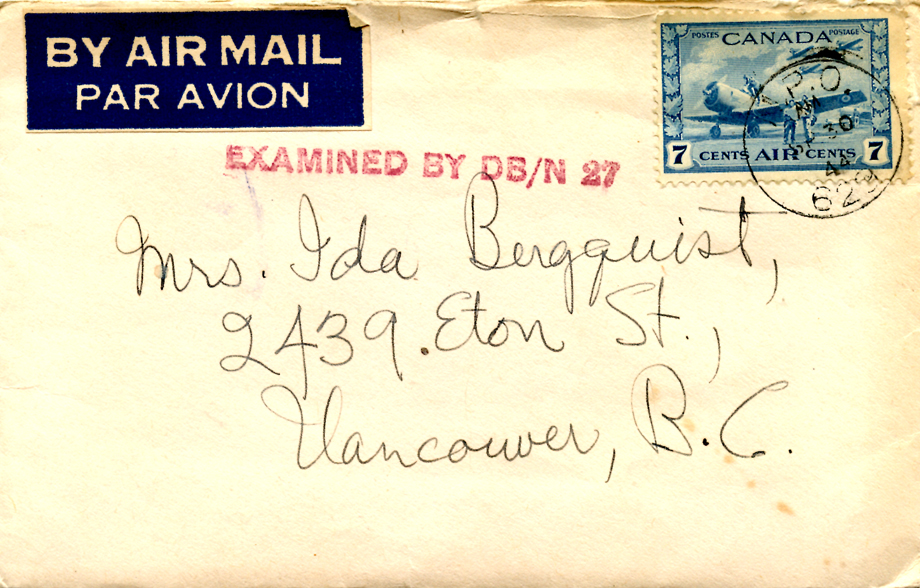 BY AIR MAIL
PAR AVION
POSTES CANADA POSTAGE
7 CENTS AIR CENTS 7
A.P.O.
AM
SP 30
44
EXAMINED BY DB/N 27
Mrs. Ida Bergquist,
2439 Eton St.,
Vancouver, B.C.